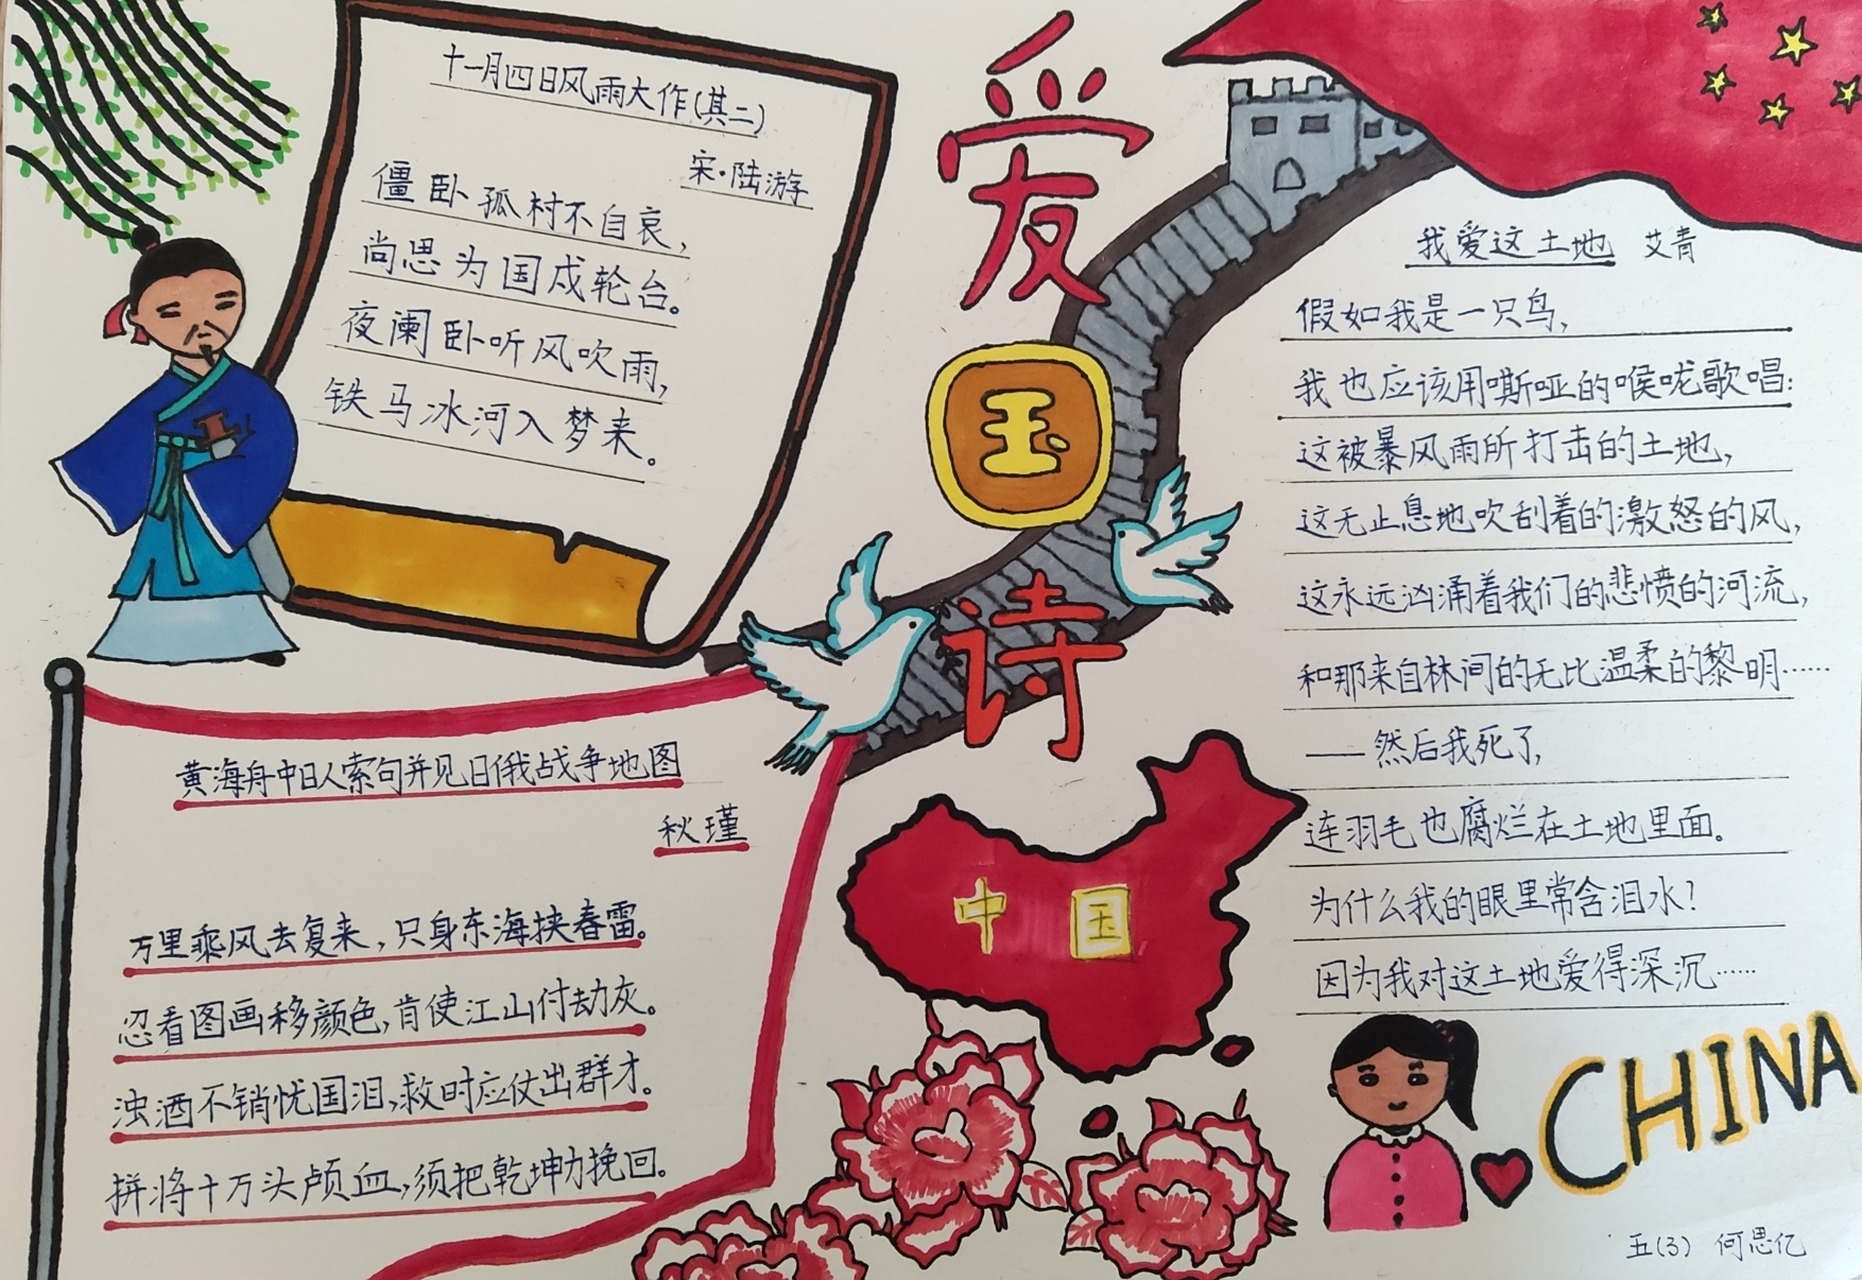 十一月四日风雨大作(其二)
宋·陆游
僵卧孤村不自哀，
尚思为国戍轮台。
夜阑卧听风吹雨，
铁马冰河入梦来。
爱
国
诗
黄海舟中日人索句并见日俄战争地图
秋瑾
万里乘风去复来，只身东海挟春雷。
忍看图画移颜色，肯使江山付劫灰。
浊酒不销忧国泪，救时应仗出群才。
拼将十万头颅血，须把乾坤力挽回。
中国
我爱这土地 艾青
假如我是一只鸟，
我也应该用嘶哑的喉咙歌唱：
这被暴风雨所打击的土地，
这无止息地吹刮着的激怒的风，
这永远汹涌着我们的悲愤的河流，
和那来自林间的无比温柔的黎明……
——然后我死了，
连羽毛也腐烂在土地里面。
为什么我的眼里常含泪水？
因为我对这土地爱得深沉……
CHINA
五(3) 何思亿